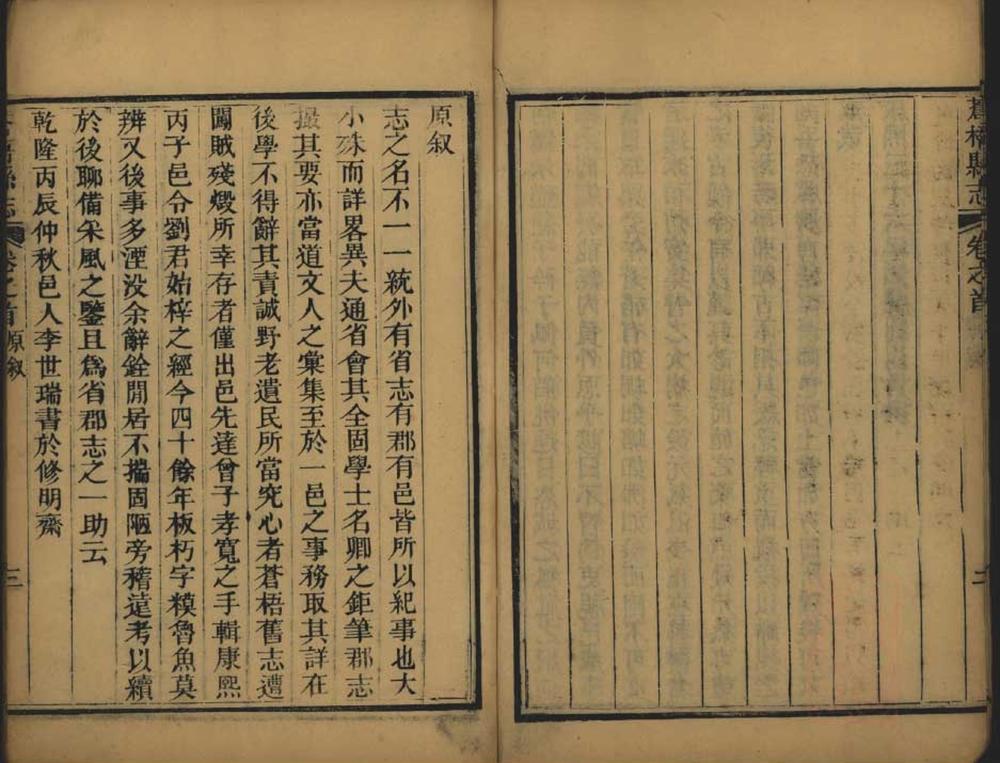 蒼梧縣志 卷之首
二
原叙
志之名不一一統外有省志有郡有邑皆所以紀事也大
小殊而詳畧異夫通省會其全固學士名卿之鉅筆郡志
撮其要亦當道文人之彙集至於一邑之事務取其詳在
後學不得辭其責誠野老遺民所當究心者蒼梧舊志遭
闖賊殘燬所幸存者僅出邑先達曾子孝寬之手輯康熙
丙子邑令劉君始梓之經今四十餘年板朽字糢魯魚莫
辨又後事多湮没余辭銓閒居不揣固陋旁稽遠考以續
於後聊備采風之鑒且爲省郡志之一助云
乾隆丙辰仲秋邑人李世瑞書於修明齋
蒼梧縣志 卷之首 原叙
三